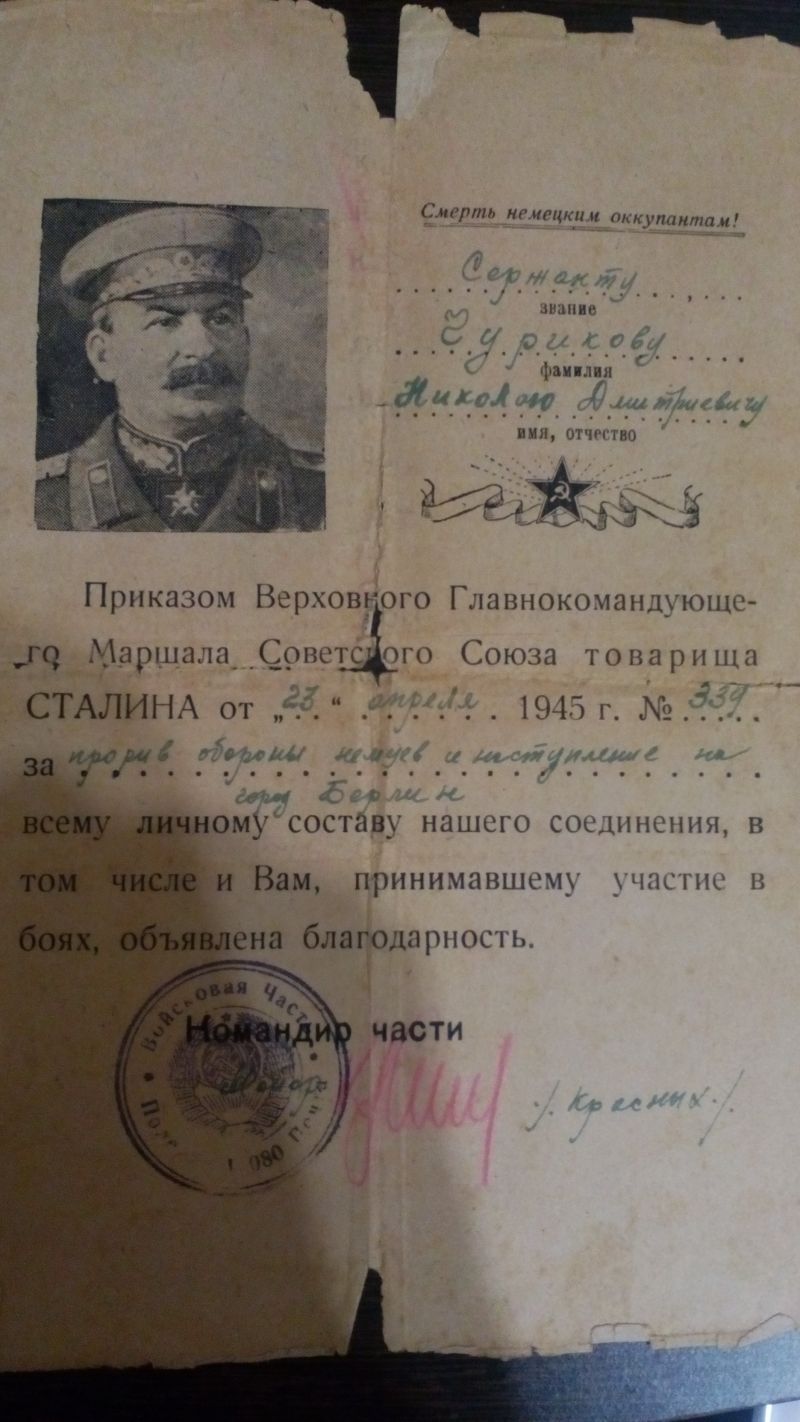 Смерть немецким оккупантам!
Сержанту
звание
Чурикову
фамилия
Николаю Дмитриевичу
имя, отчество
Приказом Верховного Главнокомандующе-
го Маршала Советского Союза товарища
СТАЛИНА от „23“ апреля 1945 г. № 339
за прорыв обороны немцев и наступление на
город Берлин
всему личному составу нашего соединения, в
том числе и Вам, принимавшему участие в
боях, объявлена благодарность.
Войсковая Часть
Командир части
/Красных/